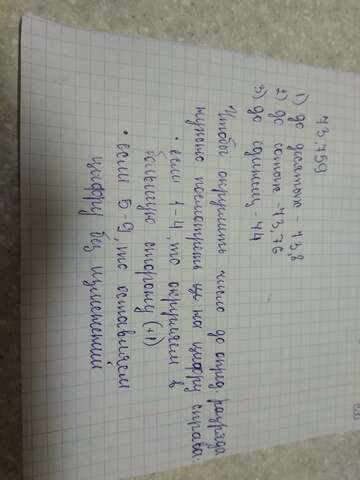 73,759
1) до десятых - 73,8
2) до сотых - 73,75
3) до единиц - 74
Чтобы округлить число до опред. разряда
нужно посмотреть на цифру справа.
• если 1-4, то округляем в
большую сторону (+1)
• если 5-9, то оставляем
цифру без изменений